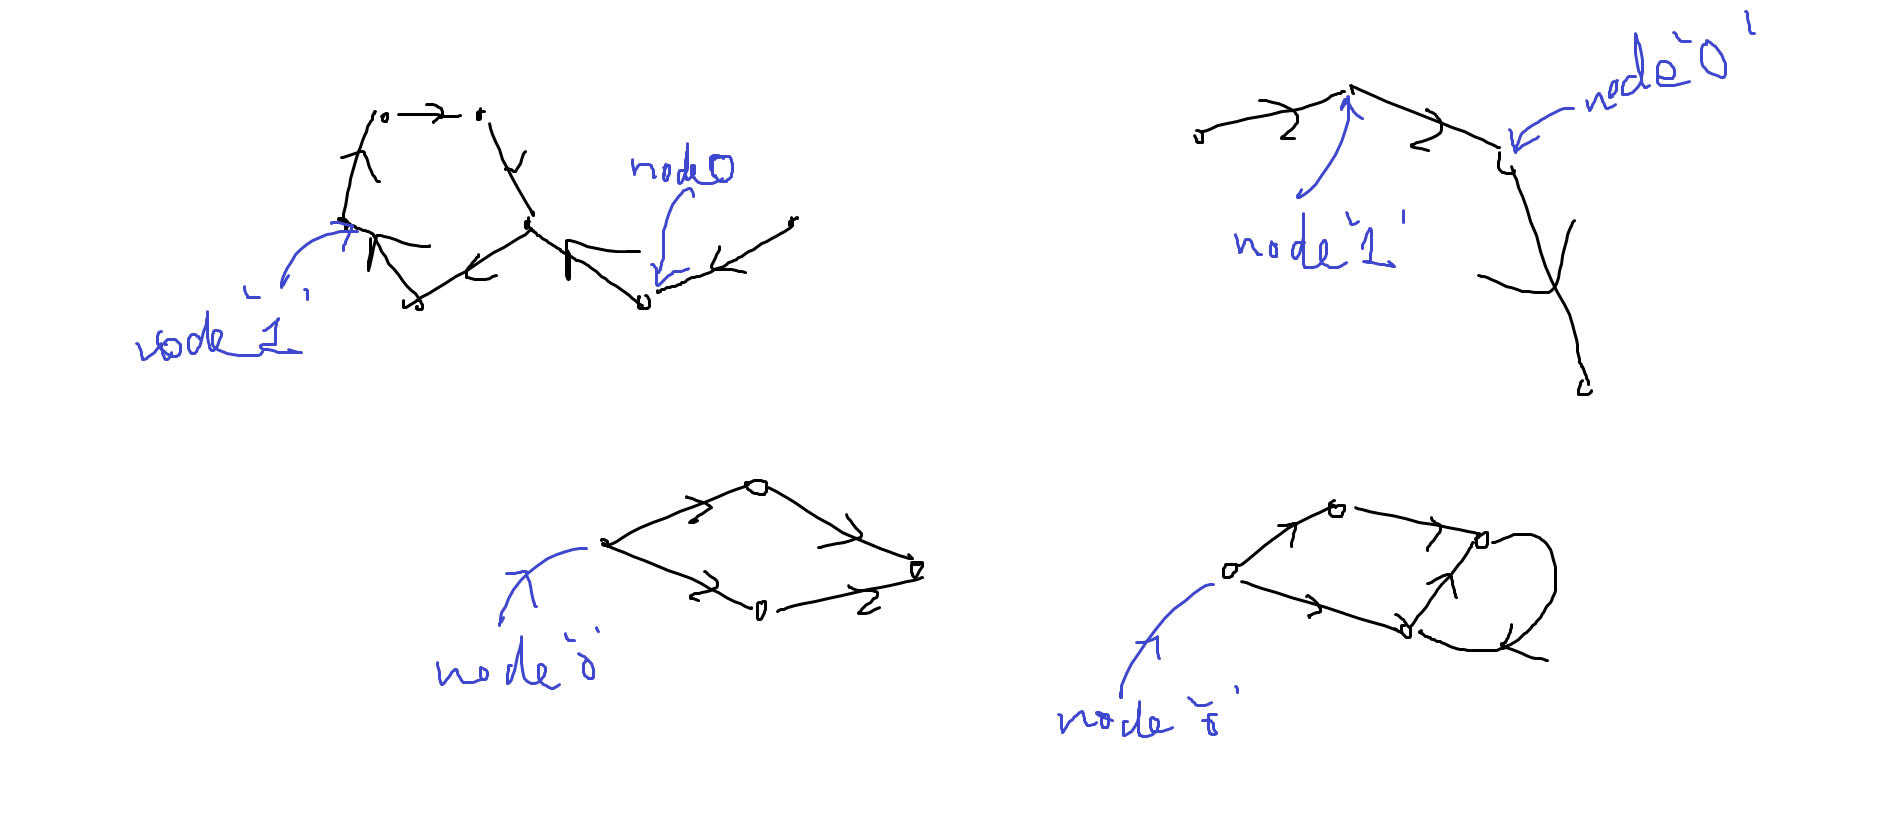 node `0'
node 0
node `1'
node `1'
node `0'
node `0'